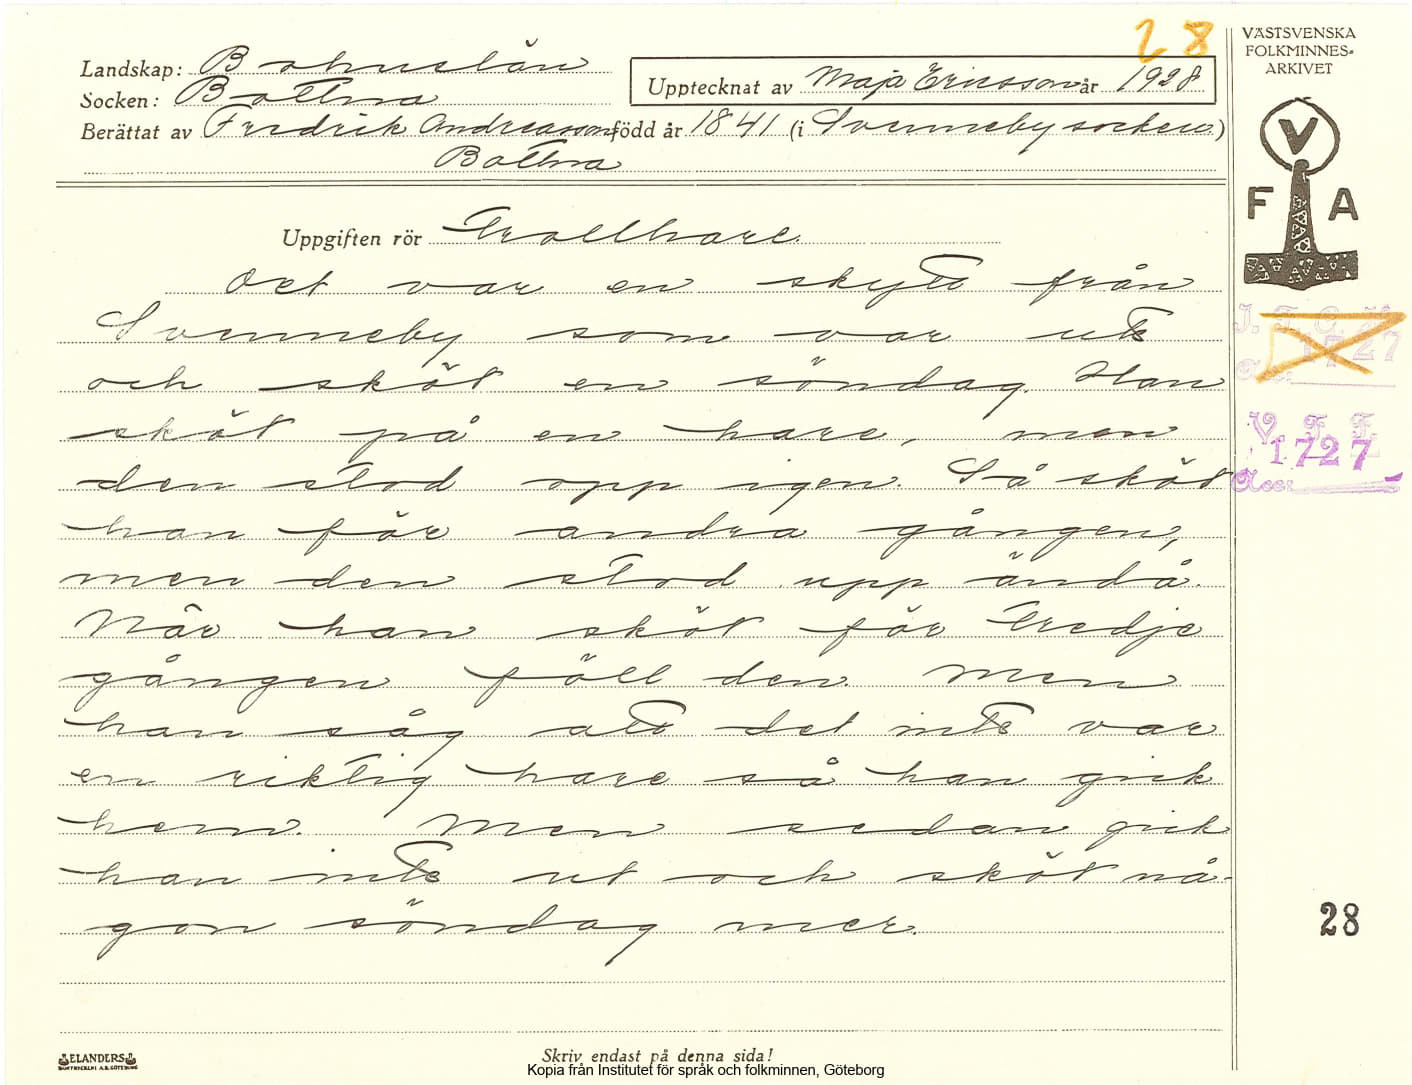 28
VÄSTSVENSKA
FOLKMINNES-
ARKIVET
Landskap: Bohuslän
Socken: Bottna
Upptecknat av Maja Ericsson år 1928
Berättat av Fredrik Andreasson född år 1841 (i Svenneby socken)
Bottna
V
F A
Uppgiften rör Trollhare.
Det var en skytt från
Svenneby som var ute
och sköt en söndag. Han
sköt på en hare, men
den stod opp igen. Så sköt
han för andra gången,
men den stod upp ändå.
När han sköt för tredje
gången föll den. Men
han såg att det inte var
en riktig hare så han gick
hem. Men sedan gick
han inte ut och sköt nå-
gon söndag mer.
1727
V. F. F.
1727
Acc:
28
ELANDERS
Skriv endast på denna sida!
Kopia från Institutet för språk och folkminnen, Göteborg